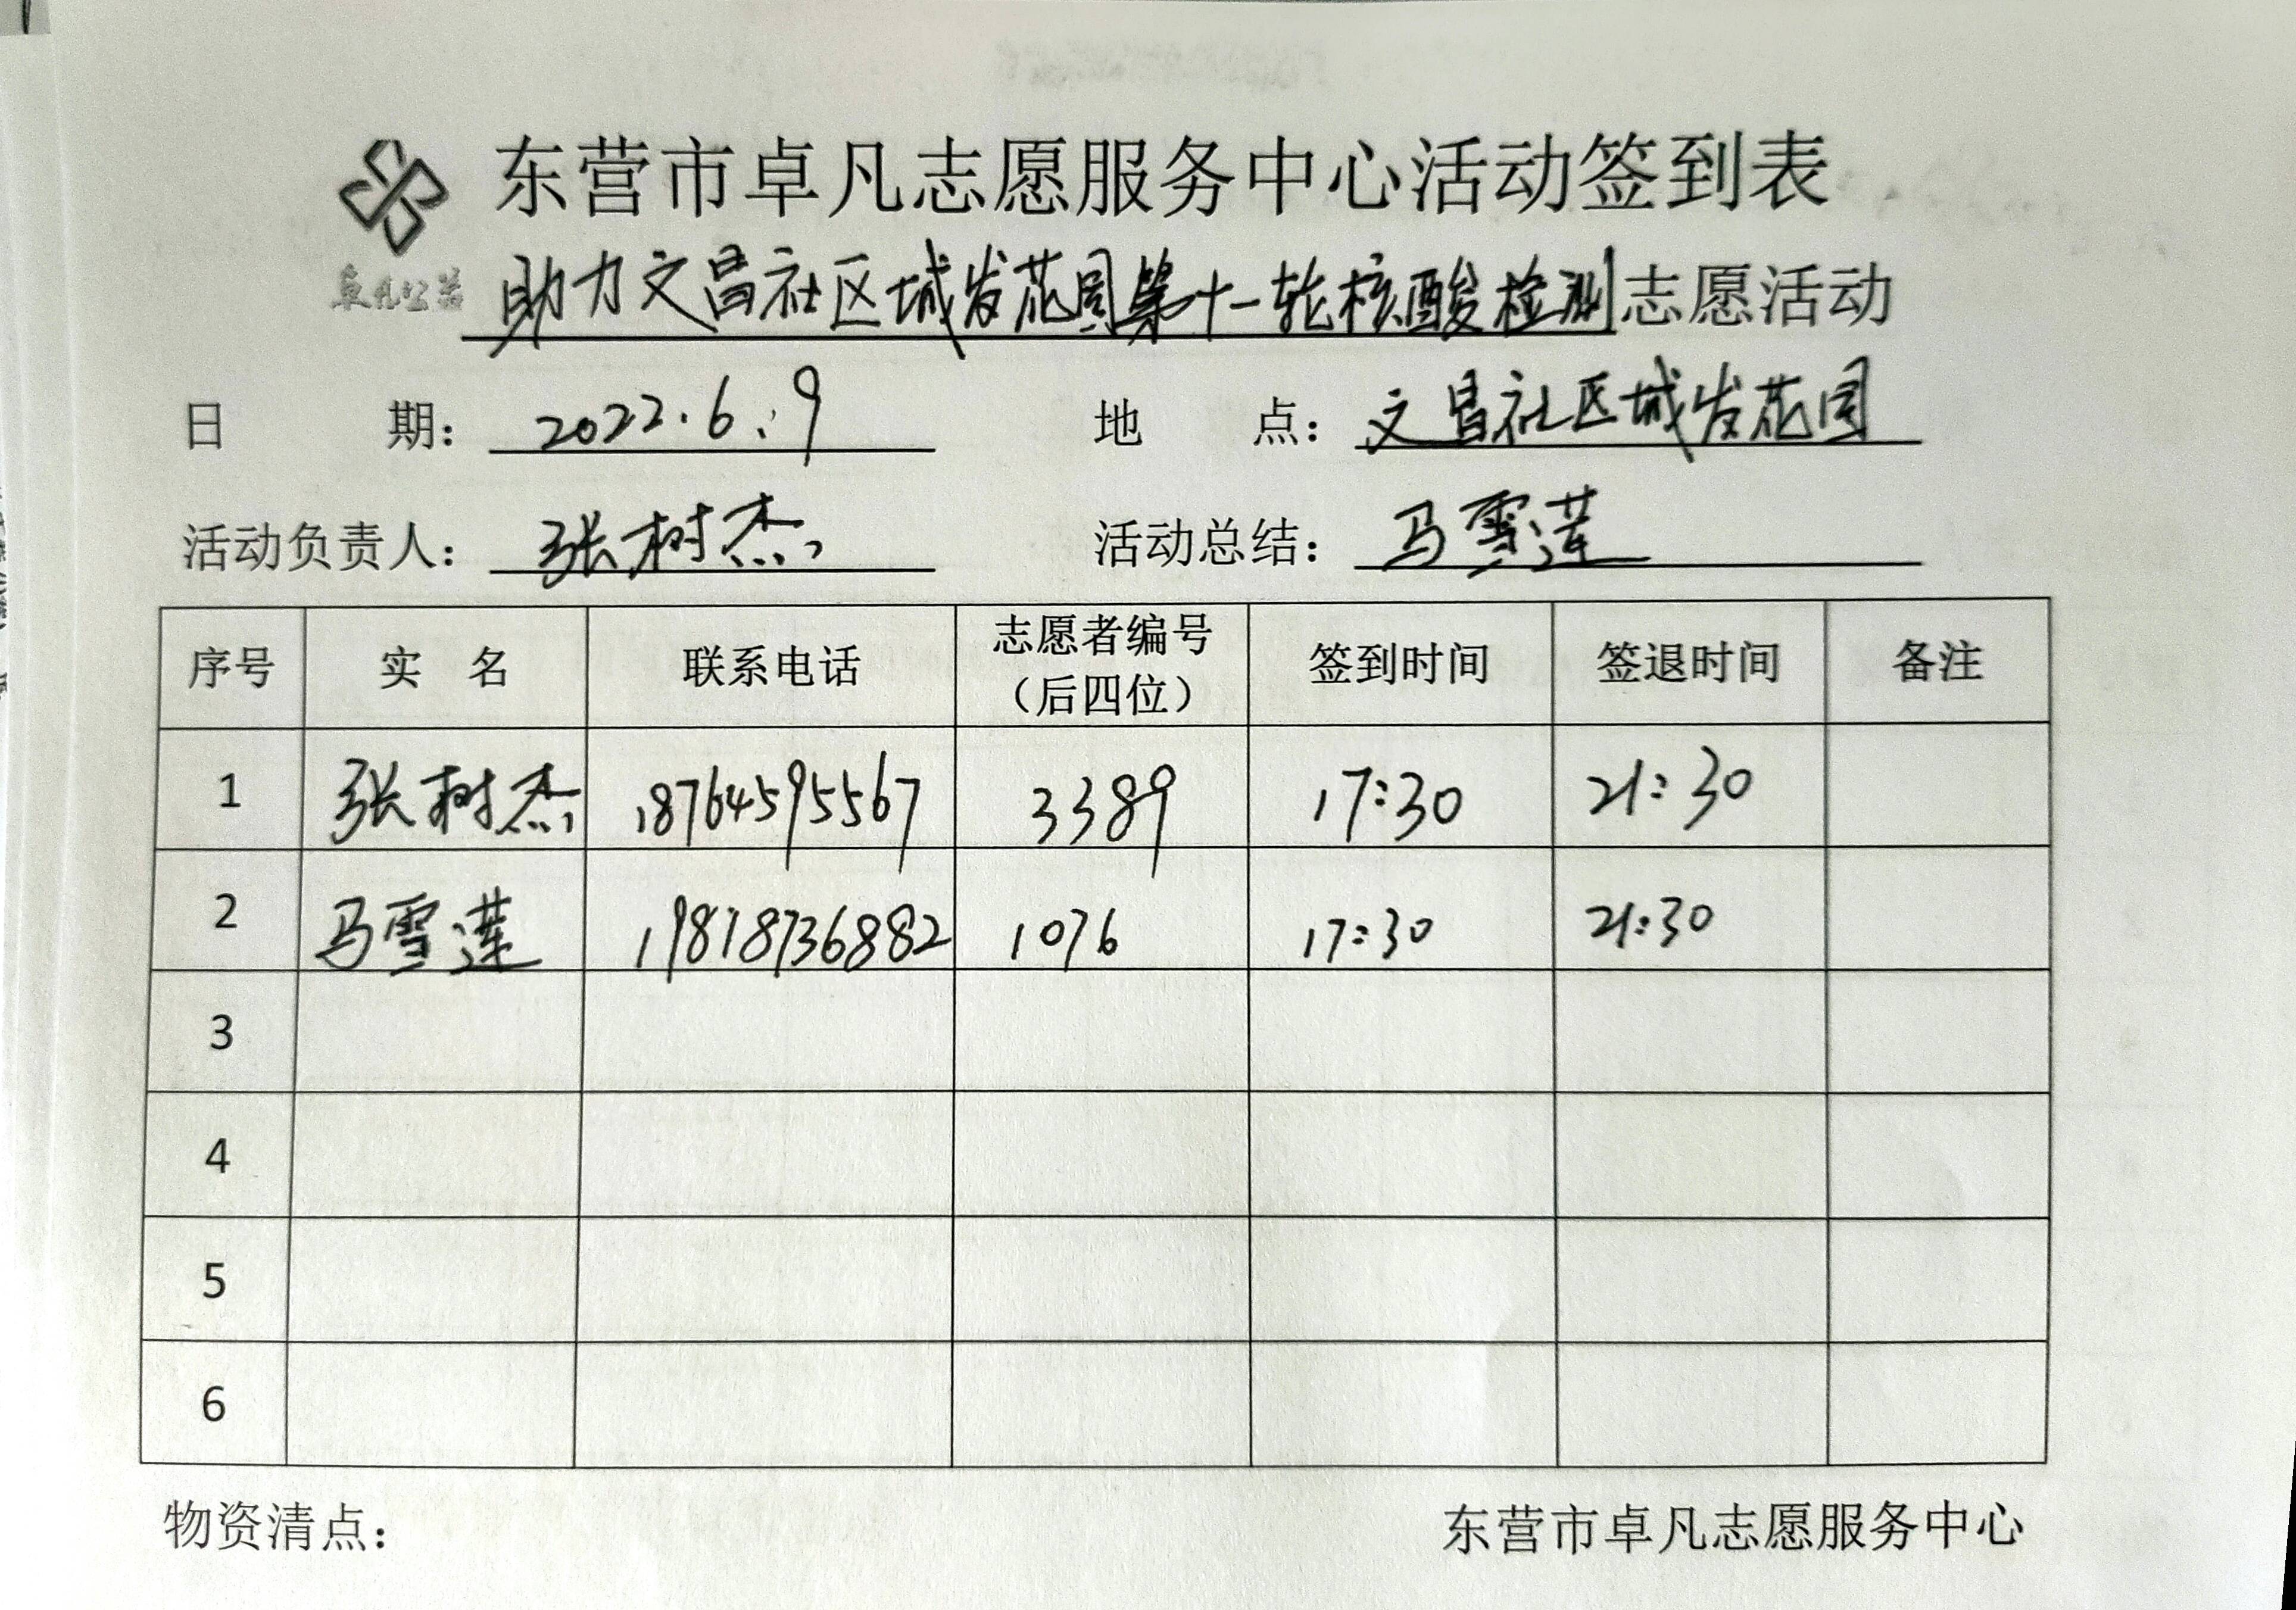 东营市卓凡志愿服务中心活动签到表
卓凡公益
助力文昌社区城发花园第十一轮核酸检测志愿活动
日 期： 2022.6.9 地 点： 文昌社区城发花园
活动负责人： 张树杰 活动总结： 马雪莲
序号 实 名 联系电话 志愿者编号（后四位） 签到时间 签退时间 备注
1 张树杰 18764595567 3389 17:30 21:30
2 马雪莲 19818736882 1076 17:30 21:30
3
4
5
6
物资清点： 东营市卓凡志愿服务中心